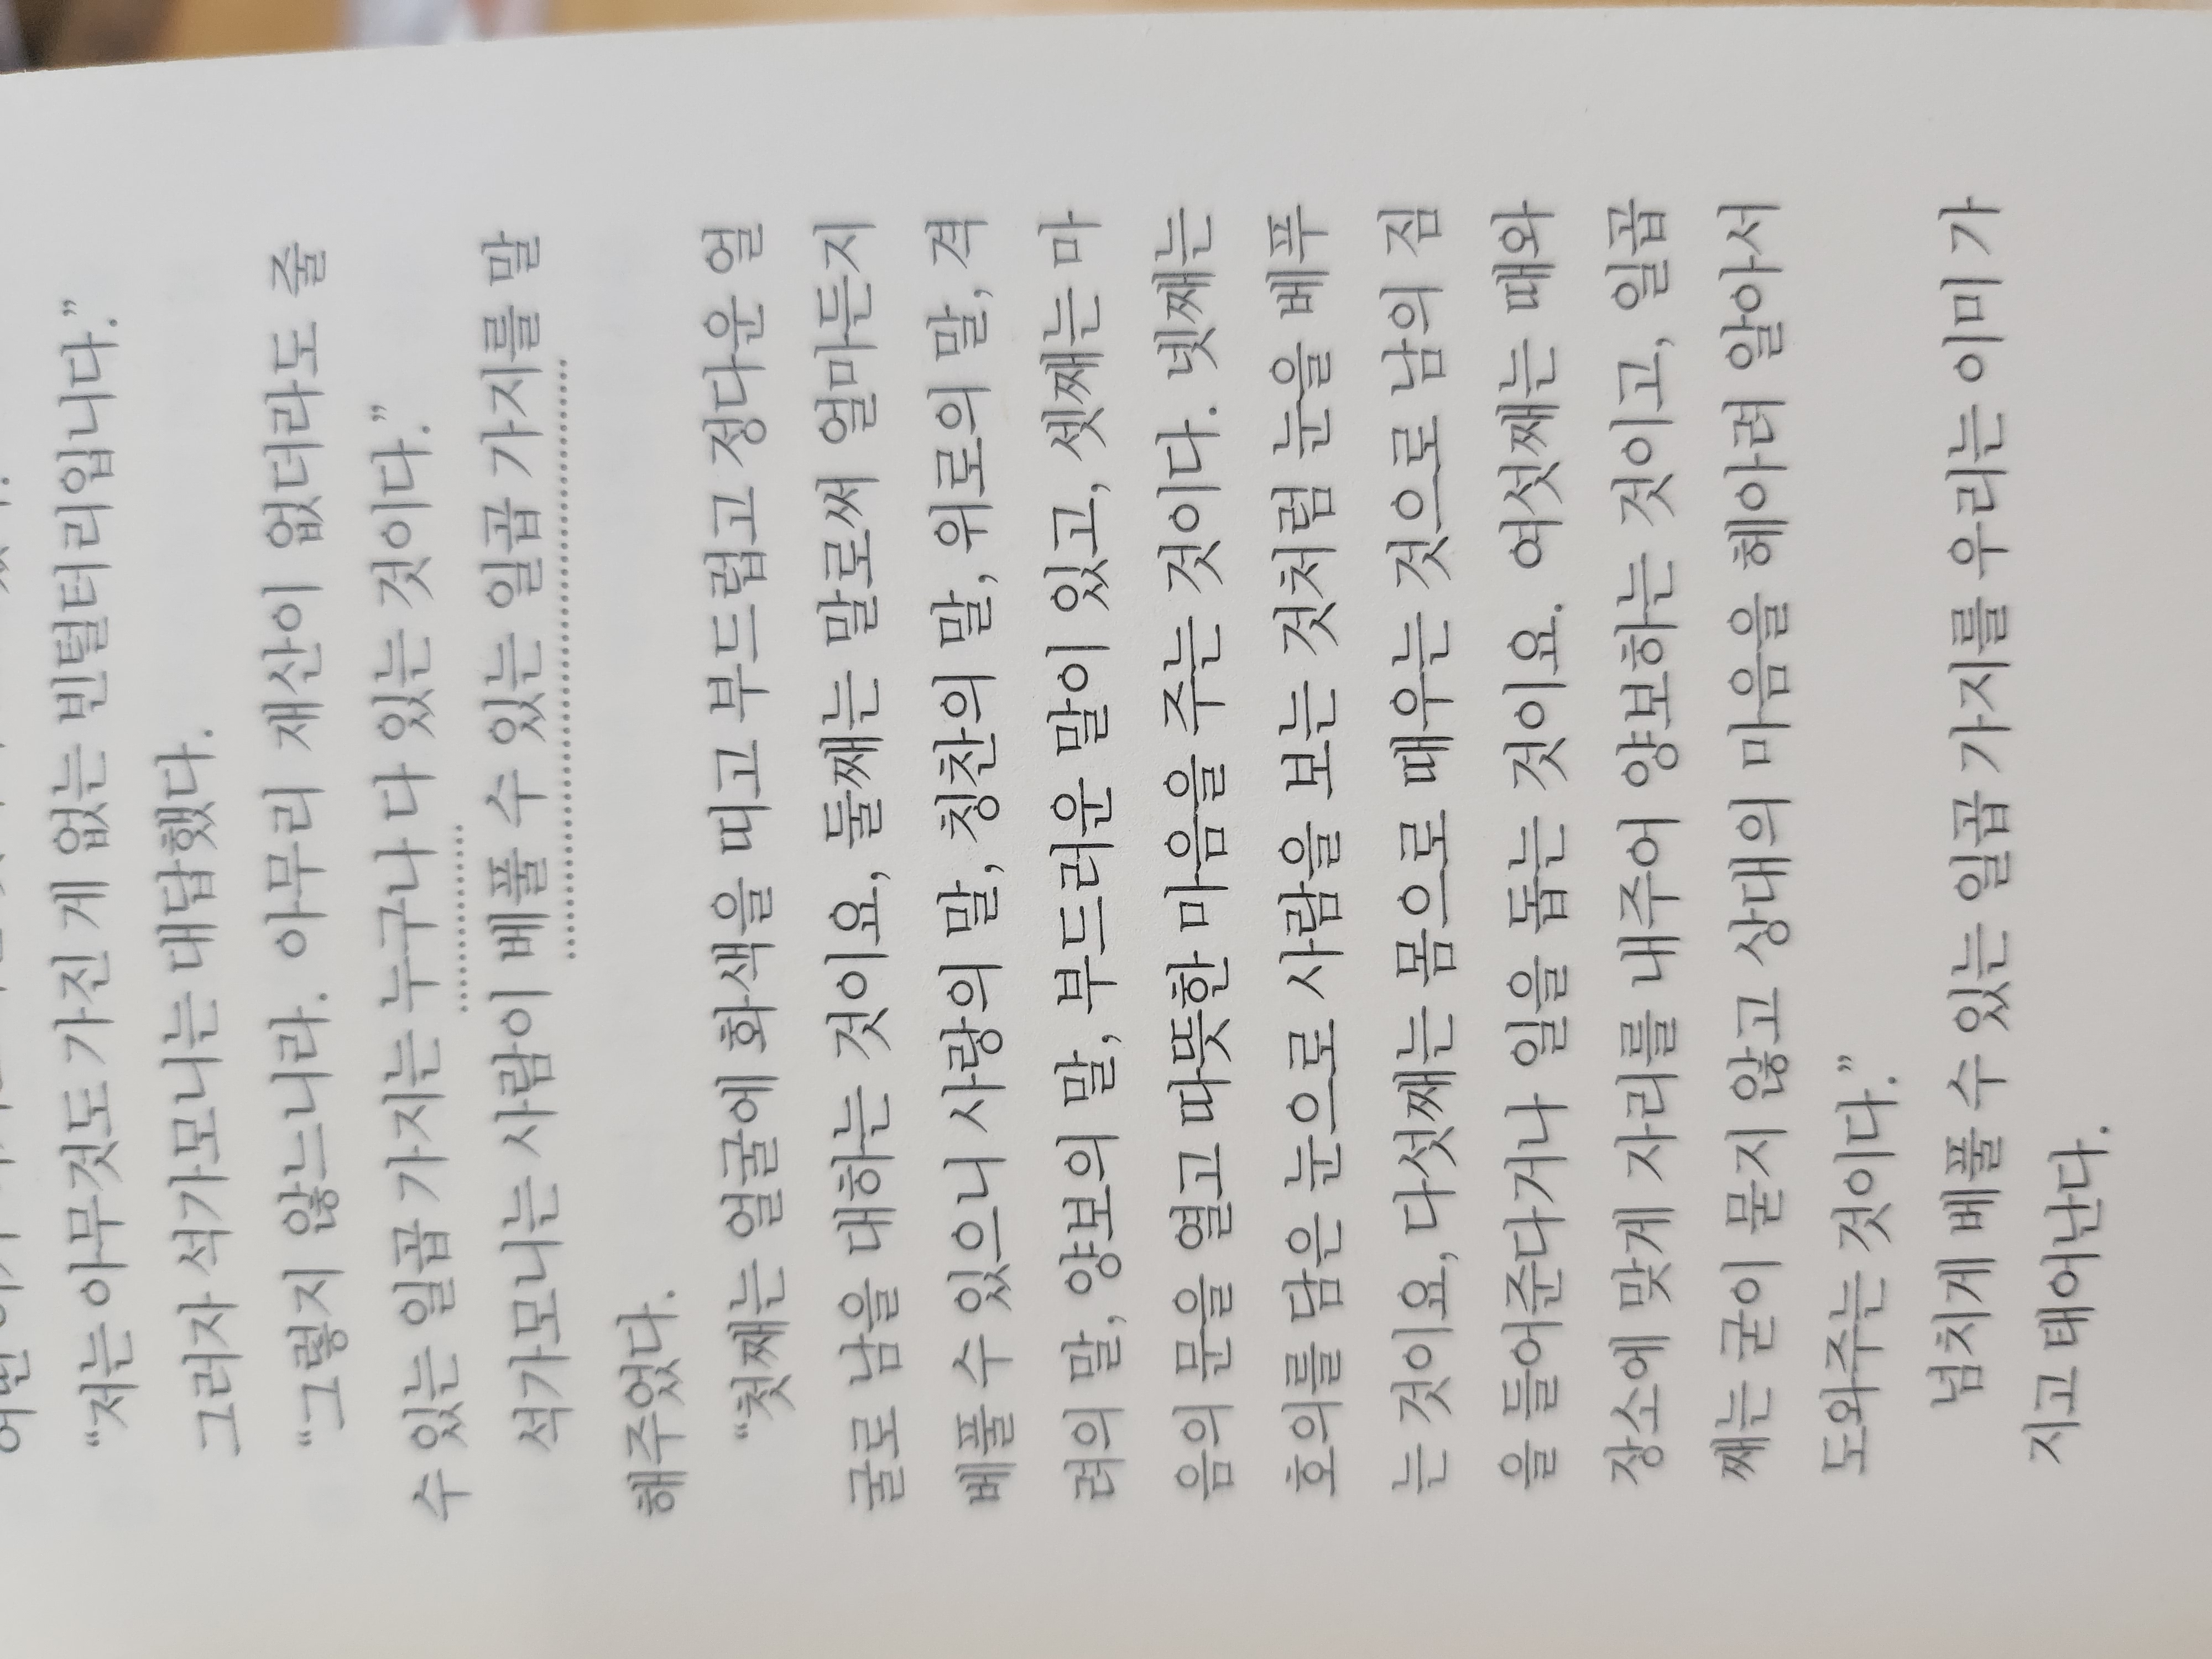 “저는 아무것도 가진 게 없는 빈털터리입니다.”
그러자 석가모니는 대답했다.
“그렇지 않느니라. 아무리 재산이 없더라도 줄
수 있는 일곱 가지는 누구나 다 있는 것이다.”
석가모니는 사람이 베풀 수 있는 일곱 가지를 말
해주었다.
“첫째는 얼굴에 화색을 띠고 부드럽고 정다운 얼
굴로 남을 대하는 것이요, 둘째는 말로써 얼마든지
베풀 수 있으니 사랑의 말, 칭찬의 말, 위로의 말, 격
려의 말, 양보의 말, 부드러운 말이 있고, 셋째는 마
음의 문을 열고 따뜻한 마음을 주는 것이다. 넷째는
호의를 담은 눈으로 사람을 보는 것처럼 눈을 베푸
는 것이요, 다섯째는 몸으로 때우는 것으로 남의 짐
을 들어준다거나 일을 돕는 것이요. 여섯째는 때와
장소에 맞게 자리를 내주어 양보하는 것이고, 일곱
째는 굳이 묻지 않고 상대의 마음을 헤아려 알아서
도와주는 것이다.”
넘치게 베풀 수 있는 일곱 가지를 우리는 이미 가
지고 태어난다.